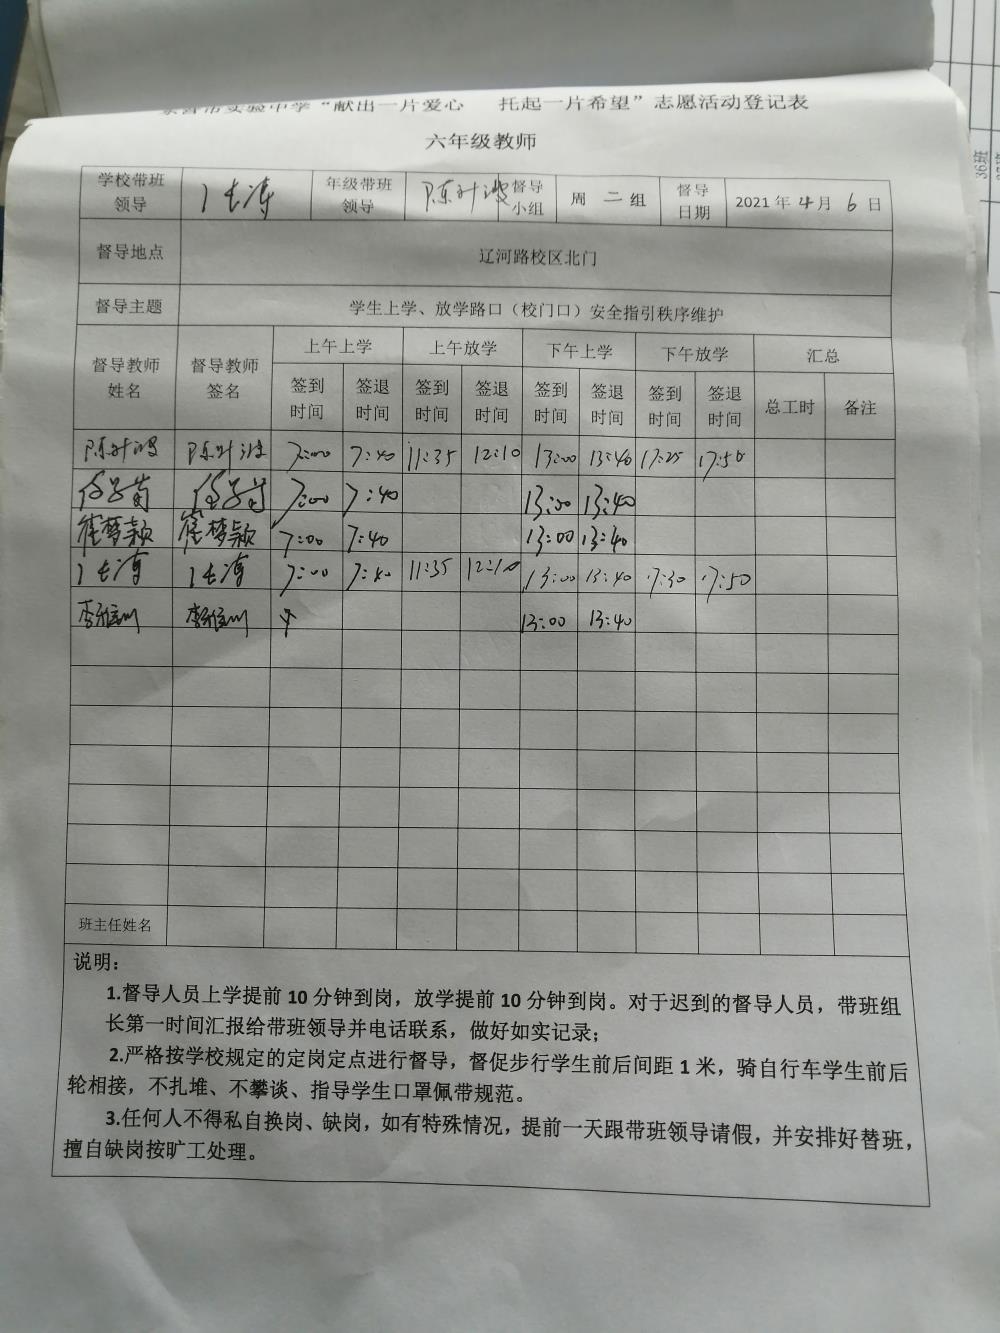 实验中学“献出一片爱心 托起一片希望”志愿活动登记表
六年级教师
学校带班领导 年级带班领导 陈叶波 督导小组 周 二 组 督导日期 2021 年 4 月 6 日
督导地点 辽河路校区北门
督导主题 学生上学、放学路口（校门口）安全指引秩序维护
督导教师姓名 督导教师签名 上午上学 上午放学 下午上学 下午放学 汇总
签到时间 签退时间 签到时间 签退时间 签到时间 签退时间 签到时间 签退时间 总工时 备注
陈叶波 陈叶波 7:00 7:40 11:35 12:10 13:00 13:40 17:25 17:50
7:00 7:40 13:00 13:40
崔梦颖 崔梦颖 7:00 7:40 13:00 13:40
7:00 7:40 11:35 12:10 13:00 13:40 17:30 17:50
13:00 13:40
班主任姓名
说明：
1.督导人员上学提前 10 分钟到岗，放学提前 10 分钟到岗。对于迟到的督导人员，带班组
长第一时间汇报给带班领导并电话联系，做好如实记录；
2.严格按学校规定的定岗定点进行督导，督促步行学生前后间距 1 米，骑自行车学生前后
轮相接，不扎堆、不攀谈、指导学生口罩佩带规范。
3.任何人不得私自换岗、缺岗，如有特殊情况，提前一天跟带班领导请假，并安排好替班，
擅自缺岗按旷工处理。
36班